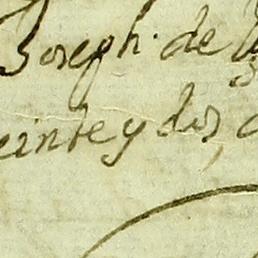 Joseph. de
veinte y dos,